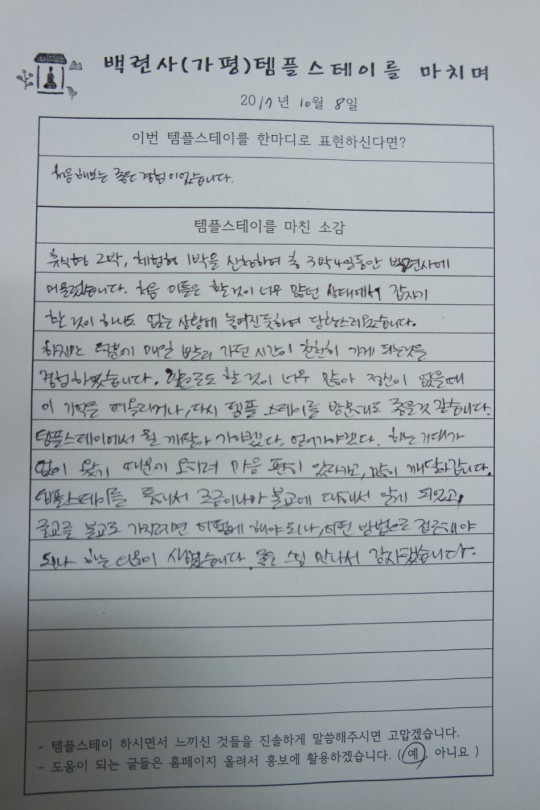 백련사(가평)템플스테이를 마치며
2017년 10월 8일
이번 템플스테이를 한마디로 표현하신다면?
처음해보는 좋은 경험이었습니다.
템플스테이를 마친 소감
휴식형 2박, 체험형 1박을 신청하여 총 3박4일동안 백련사에
머물렀습니다. 처음 이틀은 할 것이 너무 많던 상태에서 갑자기
할 것이 하나도 없는 상황에 놓여진듯하여 당황스러웠습니다.
하지만 덕분에 매일 빨리 가던 시간이 천천히 가게 되는것을
경험하였습니다. 앞으로도 할 것이 너무 많아 정신이 없을때
이 기억을 떠올리거나, 다시 템플스테이를 방문해도 좋을것 같습니다.
템플스테이에서 뭘 깨달아 가야겠다. 얻어가야겠다. 하는 기대가
없이 왔기 때문에 오히려 마음 편히 있다가고, 많이 깨달아갑니다.
템플스테이를 통해서 조금이나마 불교에 대해서 알게 되었고,
종교를 불교로 가지려면 어떻게 해야되나, 어떤 방법으로 접근해야
되나 하는 의문이 사라졌습니다. 좋은 스님 만나서 감사했습니다.
- 템플스테이 하시면서 느끼신 것들을 진솔하게 말씀해주시면 고맙겠습니다.
- 도움이 되는 글들은 홈페이지 올려서 홍보에 활용하겠습니다. ( 예, 아니요 )